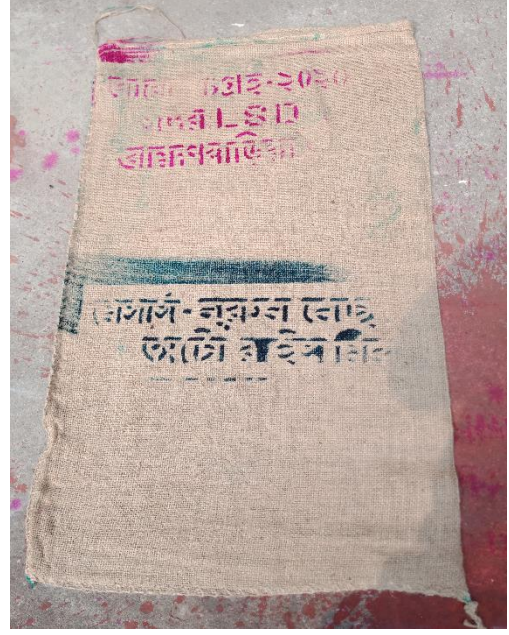 সংগ্রহ-২০২০
সদর LSD
ব্রাহ্মণবাড়িয়া
মেসার্স-নুরুল
অটো রাইস মিল